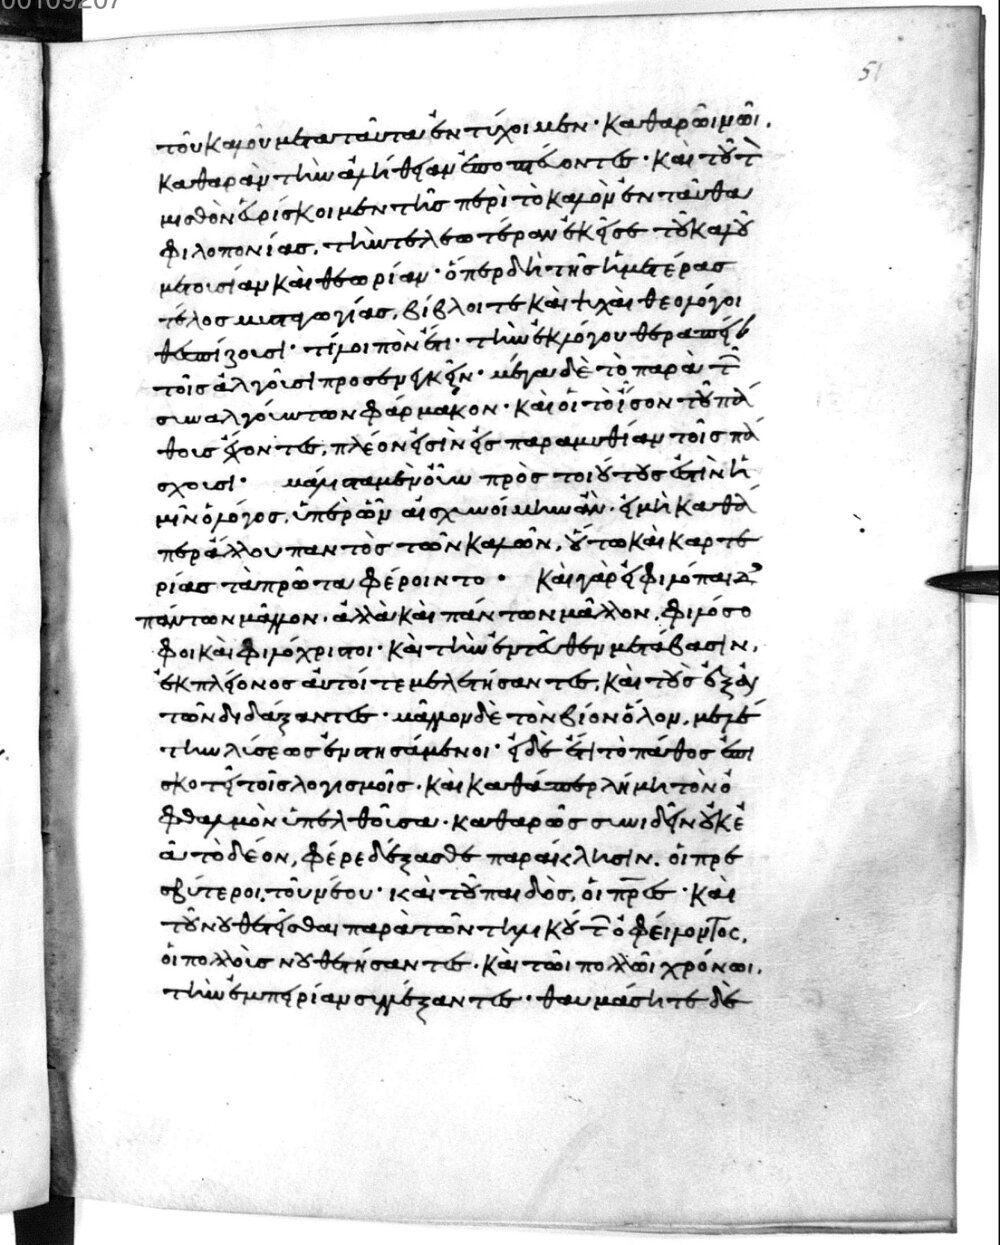 00109207
51
τοῦ καλοῦ μετὰ ταῦτα ἐντύχοιμεν· καθαρῶι μῶι.
καθαρὰν τὴν ἀλήθειαν ἐποπτεύοντες· καὶ τοῦτο
μισθὸν εὑρίσκοιμεν τῆς περὶ τὸ καλὸν ἐνταῦθα
φιλοπονίας, τὴν τελεωτέραν ἐκεῖσε τοῦ καλοῦ
μετουσίαν καὶ θεωρίαν· ὅπερ δὴ τῆς ἡμετέρας
τέλος μυσταγωγίας, βίβλοι τε καὶ ψυχαὶ θεολόγοι
θεσπίζουσι· τί λοιπὸν ἔτι· τὴν ἐκ λόγου θεραπεί
τοῖς ἀλγοῦσι προσενεγκεῖν· μέγα δὲ τὸ παρὰ τῶν
συναλγούντων φάρμακον· καὶ οἱ τὸ ἴσον τοῦ πά
θους ἔχοντες, πλέον εἰσὶν εἰς παραμυθίαν τοῖς πά
σχουσι· μάλιστα μὲν οὖν πρὸς τοιούτους ἐστὶν ἡ
μῖν ὁ λόγος, ὑπὲρ ὧν αἰσχυνοίμην ἂν· εἰ μὴ καθά
περ ἄλλου παντὸς τῶν καλῶν, οὕτω καὶ καρτε
ρίας τὰ πρῶτα φέροιντο· καὶ γὰρ εἰ φιλόπαιδες
πάντων μᾶλλον. ἀλλὰ καὶ πάντων μᾶλλον, φιλόσο
φοι καὶ φιλόχριστοι· καὶ τὴν ἐντεῦθεν μετάβασιν,
ἐκ πλείονος αὐτοί τε μελετήσαντες, καὶ τοὺς ἐξ αὐ
τῶν διδάξαντες· μᾶλλον δὲ τὸν βίον ὅλον, μελέ
την λύσεως ἐνστησάμενοι· εἰ δὲ ἔτι τὸ πάθος ἐπι
σκοτεῖ τοῖς λογισμοῖς· καὶ καθάπερ λήμη τὸν ὀ
φθαλμὸν ὑπελθοῦσα· καθαρῶς συνιδεῖν οὐκ ἐ
ᾶ τὸ δέον, φέρε δέξασθε παράκλησιν. οἱ πρε
σβύτεροι, τοῦ νέου· καὶ τοῦ παιδὸς, οἱ πρες· καὶ
τοῦ νουθετεῖσθαι παρὰ τῶν τηλικούτ ὀφείλοντος,
οἱ πολλοὺς νουθετήσαντες· καὶ τῶι πολλῶι χρόνωι.
τὴν ἐμπειρίαν συλλέξαντες· θαυμάσητε δὲ